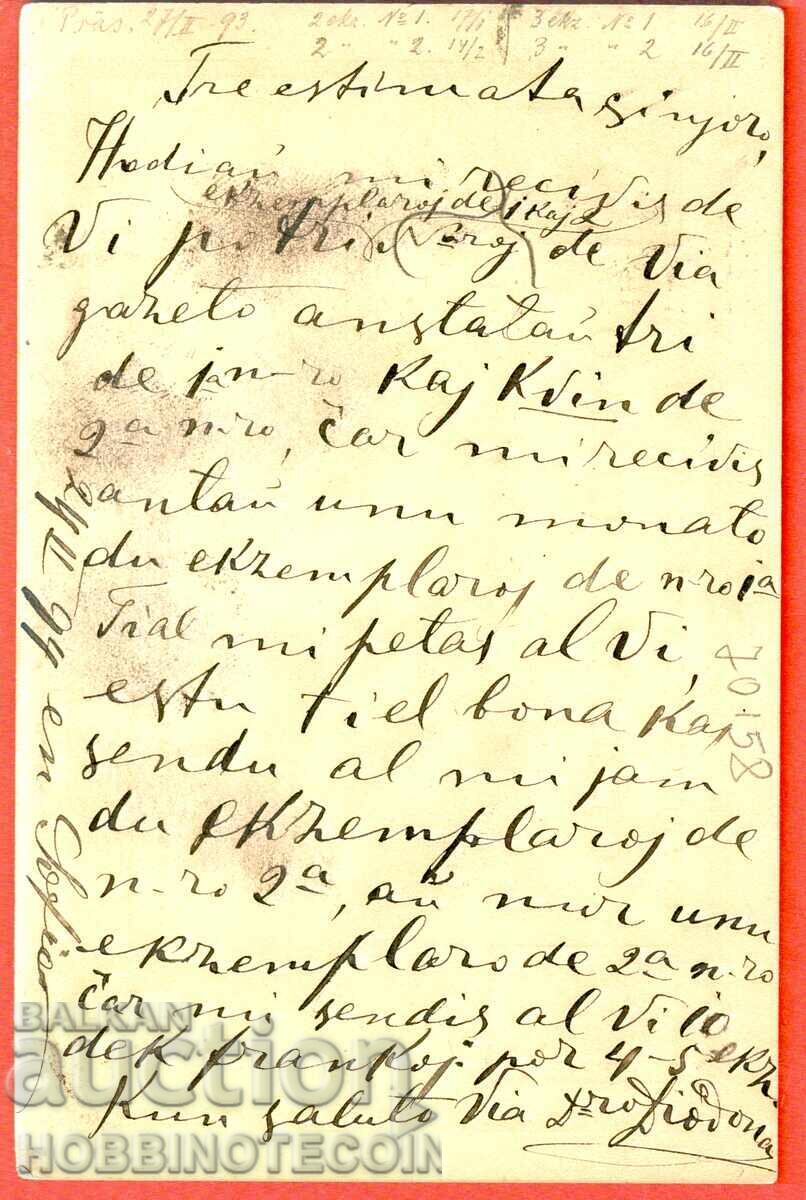 Präs. 27/II 93. 2 ekz. No 1. 17/I 3 ekz. No 1 16/II
2 " " 2. 14/2 3 " " 2 16/II
Tre estimata sinjoro,
Hodiaŭ mi recivis de
ekzemplaroj de 1 kaj 2
Vi po tri Nroj de Via
gazeto anstataŭ tri
de 1a n-ro kaj kvin de
2a n-ro, ĉar mi recivis
antaŭ unu monato
du ekzemplaroj de n-ro 1a
Tial mi petas al Vi,
estu tiel bona kaj
sendu al mi jam
du ekzemplaroj de
n-ro 2a, aŭ nur unu
ekzemplaro de 2a n-ro
ĉar mi sendis al Vi 10
dek frankoj por 4-5 ekz.
Kun saluto Via D-ro
24 II 94 en Sofio
70158
BALKAN
auction
HOBBINOTECOIN